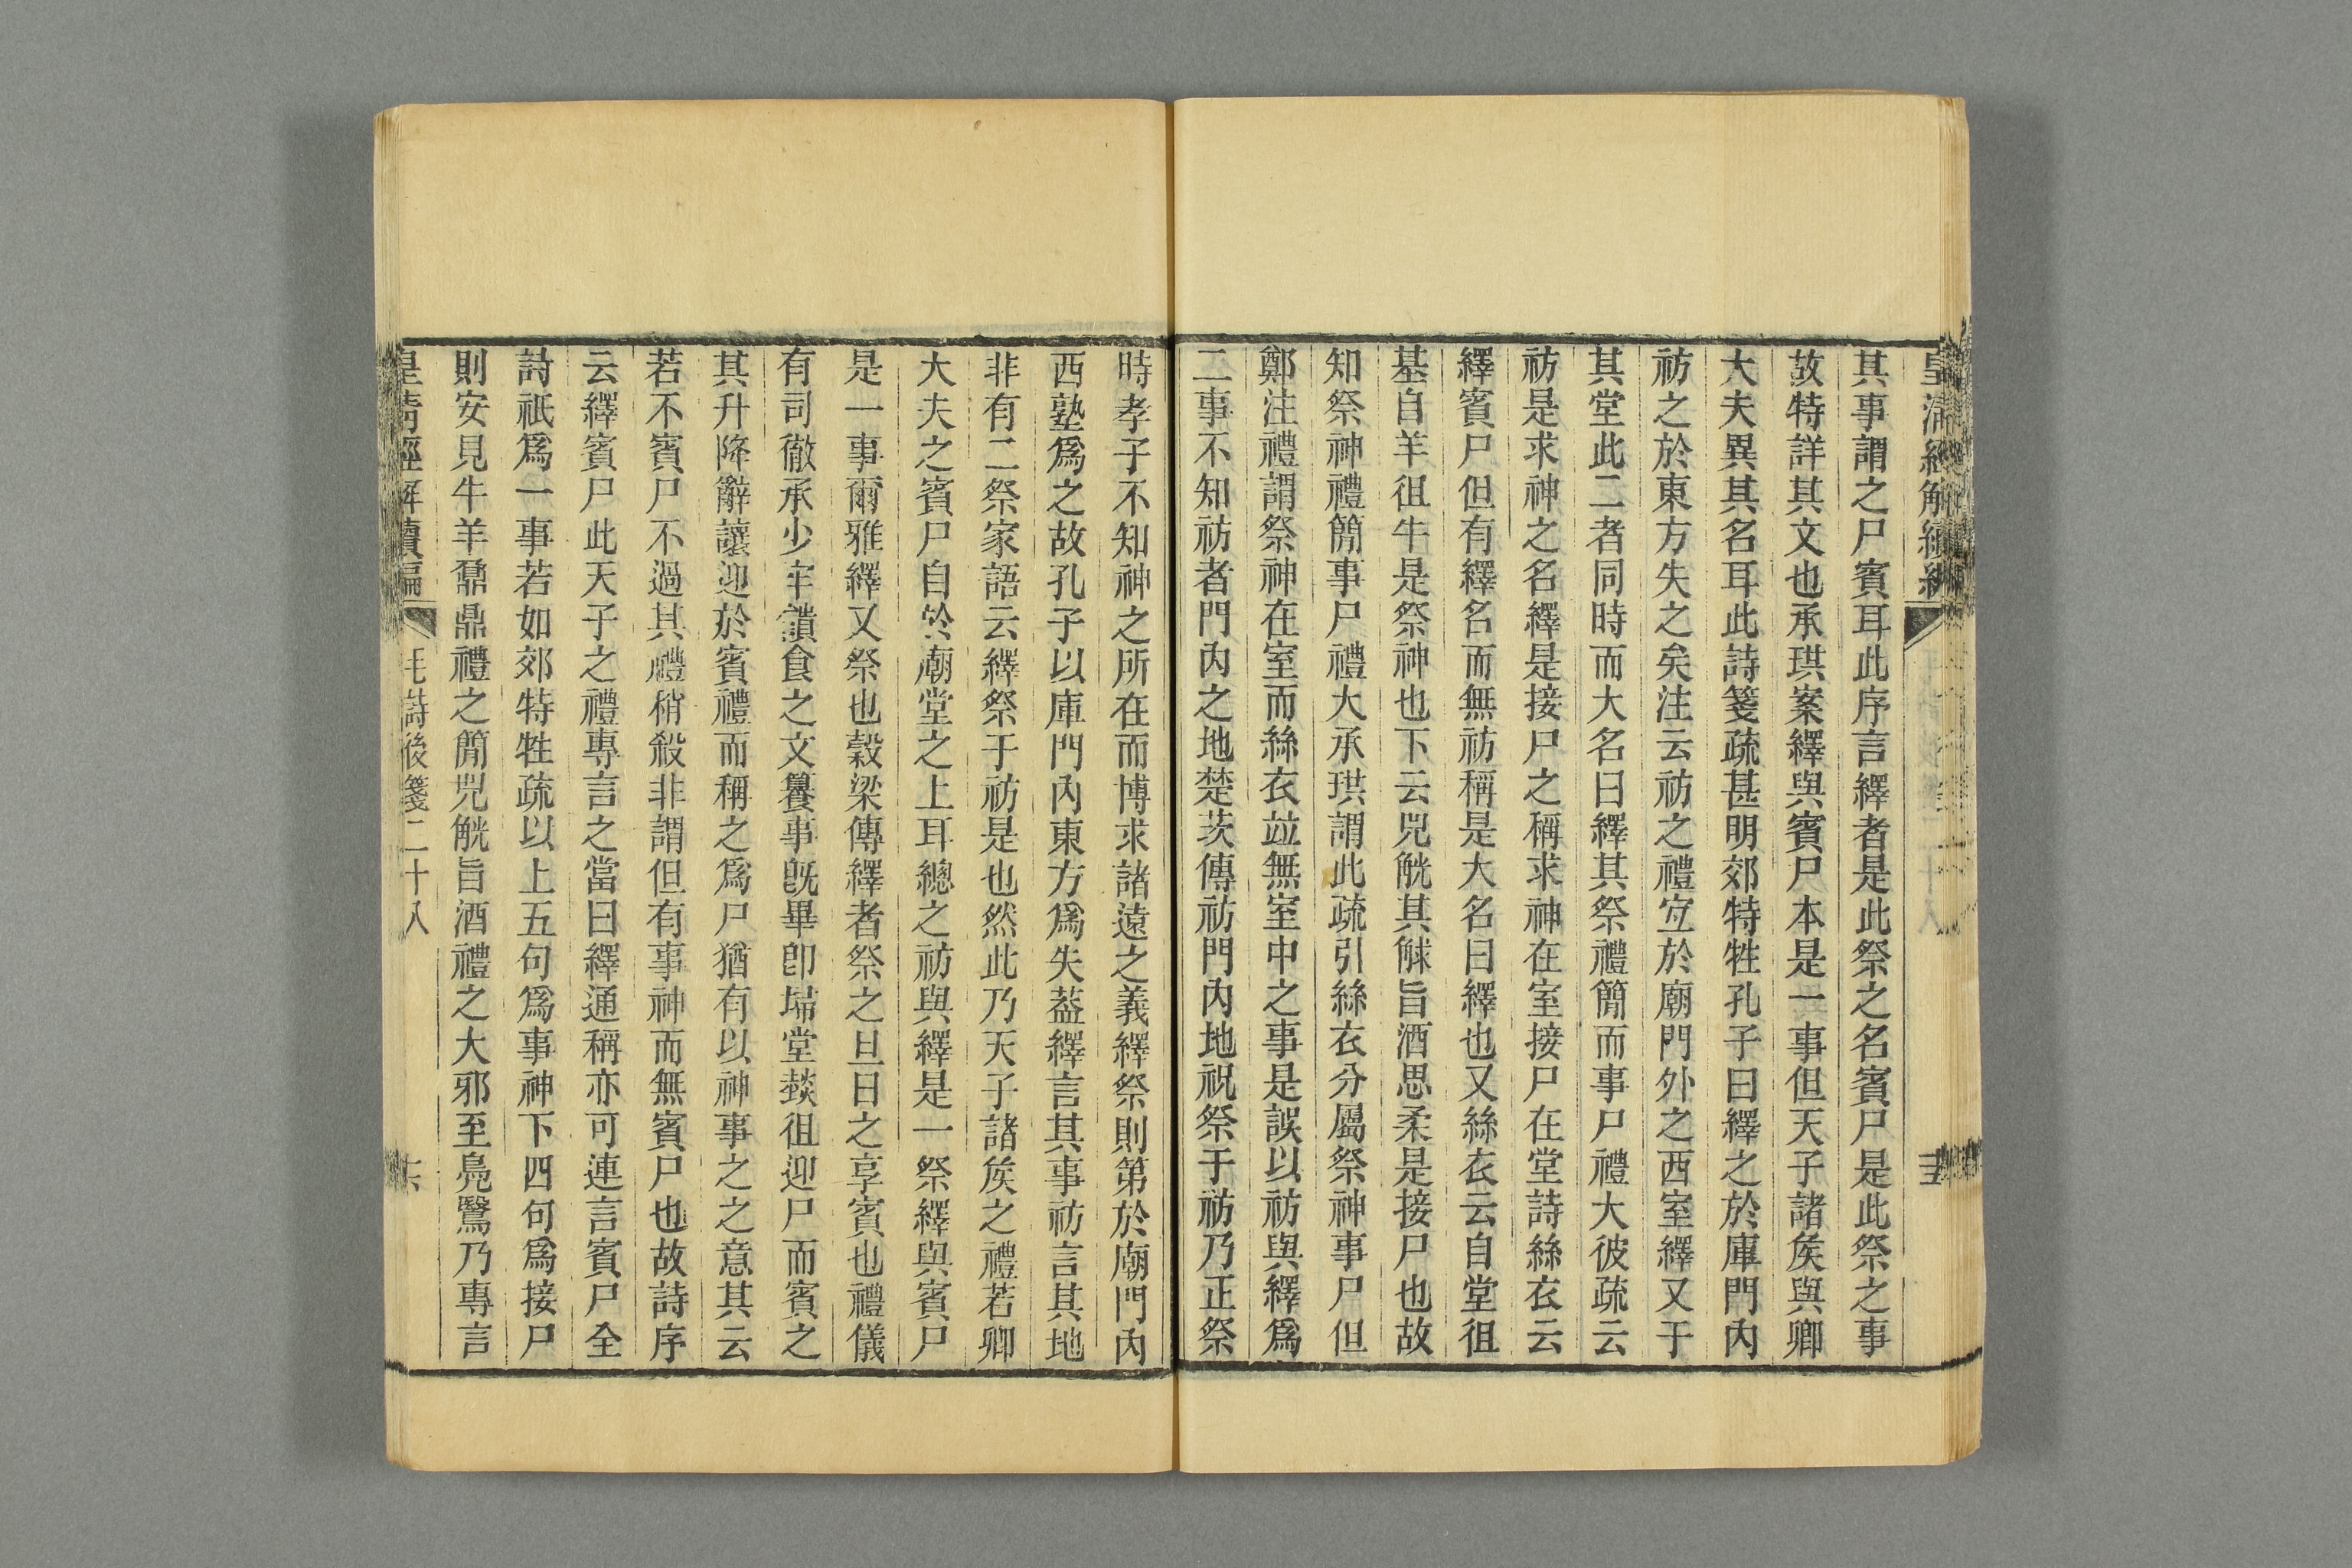 皇清經解續編
其事謂之尸賓耳此序言繹者是此祭之名賓尸是此祭之事
故特詳其文也承珙案繹與賓尸本是一事但天子諸矦與卿
大夫異其名耳此詩箋疏甚明郊特牲孔子曰繹之於庫門內
祊之於東方失之矣注云祊之禮宐於廟門外之西室繹又于
其堂此二者同時而大名曰繹其祭禮簡而事尸禮大彼疏云
祊是求神之名繹是接尸之稱求神在室接尸在堂詩絲衣云
繹賓尸但有繹名而無祊稱是大名曰繹也又絲衣云自堂徂
基自羊徂牛是祭神也下云兕觥其觩旨酒思柔是接尸也故
知祭神禮簡事尸禮大承珙謂此疏引絲衣分屬祭神事尸但
鄭注禮謂祭神在室而絲衣竝無室中之事是誤以祊與繹爲
二事不知祊者門內之地楚茨傳祊門內地祝祭于祊乃正祭
時孝子不知神之所在而博求諸遠之義繹祭則第於廟門內
西塾爲之故孔子以庫門內東方爲失葢繹言其事祊言其地
非有二祭家語云繹祭于祊是也然此乃天子諸矦之禮若卿
大夫之賓尸自於廟堂之上耳總之祊與繹是一祭繹與賓尸
是一事爾雅繹又祭也穀梁傳繹者祭之旦日之享賓也禮儀
有司徹承少牢饋食之文籑事旣畢卽埽堂燅俎迎尸而賓之
其升降辭讓迎於賓禮而稱之爲尸猶有以神事之之意其云
若不賓尸不過其禮稍殺非謂但有事神而無賓尸也故詩序
云繹賓尸此天子之禮專言之當曰繹通稱亦可連言賓尸全
詩祇爲一事若如郊特牲疏以上五句爲事神下四句爲接尸
則安見牛羊鼐鼎禮之簡兕觥旨酒禮之大邪至鳧鷖乃專言
皇清經解續編 毛詩後箋二十八 十六